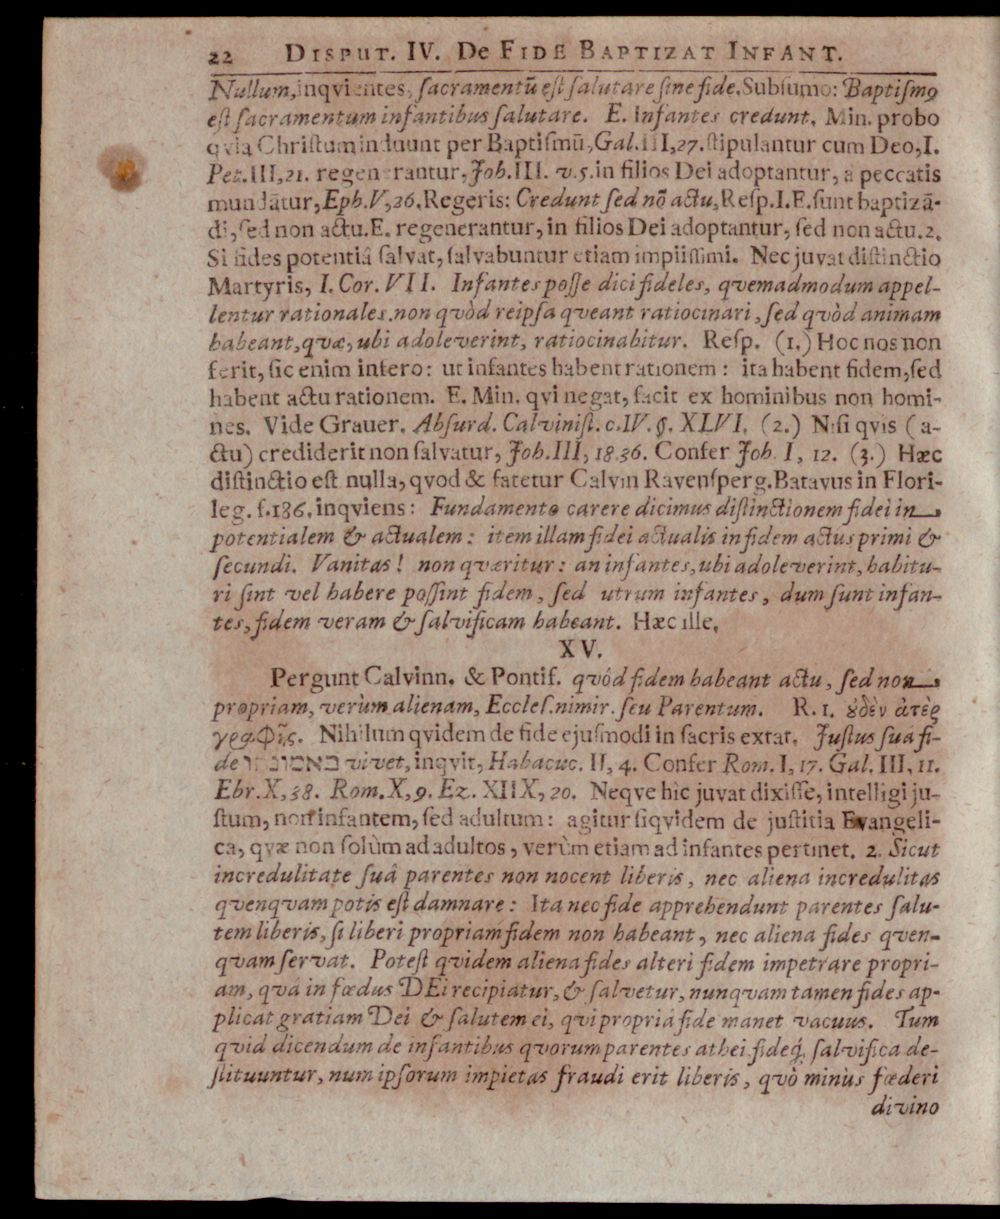 22 DISPUT. IV. DE FIDE BAPTIZAT INFANT.
Nullum, inqvientes, ſacramentū eſt ſalutare ſine fide. Subſumo: Baptiſmꝰ
eſt ſacramentum infantibus ſalutare. E. Infantes credunt. Min. probo
qvia Chriſtum induunt per Baptiſmū, Gal. III, 27. ſtipulantur cum Deo, I.
Pet. III, 21. regenerantur, Joh. III. v. 5. in filios Dei adoptantur, a peccatis
mundātur, Eph. V, 26. Regeris: Credunt ſed nō actu, Reſp. I. E. ſunt baptizā-
di, ſed non actu. E. regenerantur, in filios Dei adoptantur, ſed non actu. 2.
Si fides potentiâ ſalvat, ſalvabuntur etiam impiiſſimi. Nec juvat diſtinctio
Martyris, I. Cor. VII. Infantes poſſe dici fideles, qvemadmodum appel-
lentur rationales, non qvòd reipſa qveant ratiocinari, ſed qvòd animam
habeant, qvæ, ubi adoleverint, ratiocinabitur. Reſp. (1.) Hoc nos non
ferit, ſic enim infero: ut infantes habent rationem: ita habent fidem, ſed
habent actu rationem. E. Min. qvi negat, facit ex hominibus non homi-
nes. Vide Grauer. Abſurd. Calviniſt. c. IV. §. XLVI. (2.) Niſi qvis (a-
ctu) crediderit non ſalvatur, Joh. III, 18. 36. Confer Joh. I, 12. (3.) Hæc
diſtinctio eſt nulla, qvod & fatetur Calvin Ravenſperg. Batavus in Flori-
leg. f. 186. inqviens: Fundamento carere dicimus diſtinctionem fidei in
potentialem & actualem: item illam fidei actualis in fidem actus primi &
ſecundi. Vanitas! non qværitur: an infantes, ubi adoleverint, habitu-
ri ſint vel habere poſſint fidem, ſed utrum infantes, dum ſunt infan-
tes, fidem veram & ſalvificam habeant. Hæc ille.
XV.
Pergunt Calvinn. & Pontif. qvòd fidem habeant actu, ſed non
propriam, verùm alienam, Eccleſ. nimir. ſeu Parentum. R. 1. ȣδὲν ἀτὲρ
γραφῆς. Nihilum qvidem de fide ejuſmodi in ſacris extat. Juſtus ſua fi-
de באמונתו vivet, inqvit, Habacuc. II, 4. Confer Rom. I, 17. Gal. III, 11.
Ebr. X, 38. Rom. X, 9. Ez. XIIX, 20. Neqve hic juvat dixiſſe, intelligi ju-
ſtum, non infantem, ſed adultum: agitur ſiqvidem de juſtitia Evangeli-
ca, qvæ non ſolùm ad adultos, verùm etiam ad infantes pertinet. 2. Sicut
incredulitate ſuâ parentes non nocent liberis, nec aliena incredulitas
qvenqvam potis eſt damnare: Ita nec fide apprehendunt parentes ſalu-
tem liberis, ſi liberi propriam fidem non habeant, nec aliena fides qven-
qvam ſervat. Poteſt qvidem aliena fides alteri fidem impetrare propri-
am, qvâ in fœdus DEi recipiatur, & ſalvetur, nunqvam tamen fides ap-
plicat gratiam Dei & ſalutem ei, qvi propriâ fide manet vacuus. Tum
quid dicendum de infantibus qvorum parentes athei fideq́; ſalvifica de-
ſtituuntur, num ipſorum impietas fraudi erit liberis, qvò minùs fœderi
divino